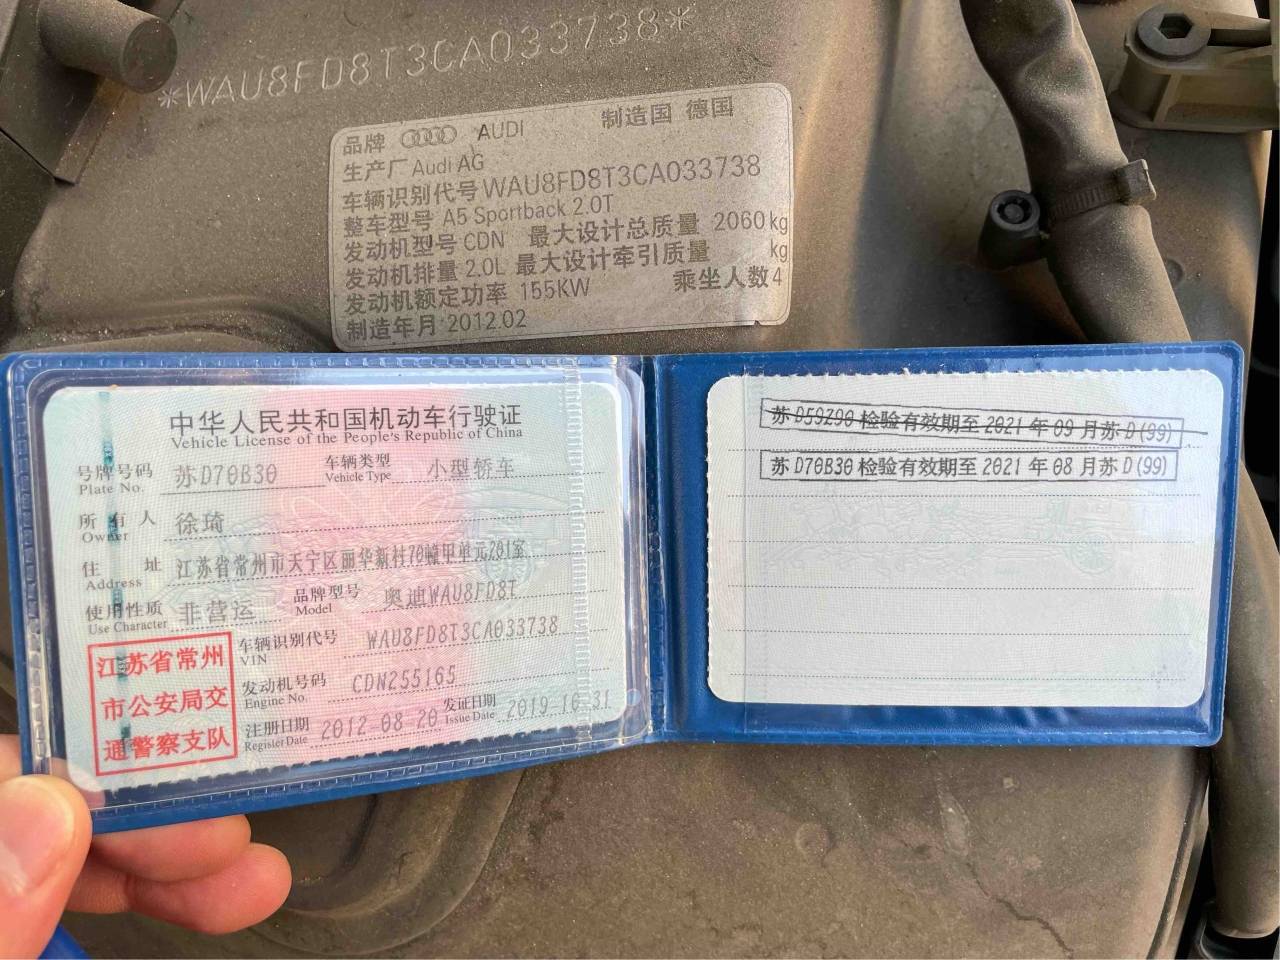 *WAU8FD8T3CA033738*
品牌 AUDI 制造国 德国
生产厂 Audi AG
车辆识别代号 WAU8FD8T3CA033738
整车型号 A5 Sportback 2.0T
发动机型号 CDN 最大设计总质量 2060 kg
发动机排量 2.0L 最大设计牵引质量 kg
发动机额定功率 155KW 乘坐人数 4
制造年月 2012.02
中华人民共和国机动车行驶证
Vehicle License of the People's Republic of China
号牌号码 苏D70B30 车辆类型 小型轿车
Plate No. Vehicle Type
所有人 徐琦
Owner
住址 江苏省常州市天宁区丽华新村70幢甲单元201室
Address
使用性质 非营运 品牌型号 奥迪WAU8FD8T
Use Character Model
车辆识别代号 WAU8FD8T3CA033738
VIN
发动机号码 CDN255165
Engine No.
注册日期 2012-08-20 发证日期 2019-10-31
Register Date Issue Date
江苏省常州
市公安局交
通警察支队
苏D59Z90检验有效期至2021年09月苏D(99)
苏D70B30检验有效期至2021年08月苏D(99)